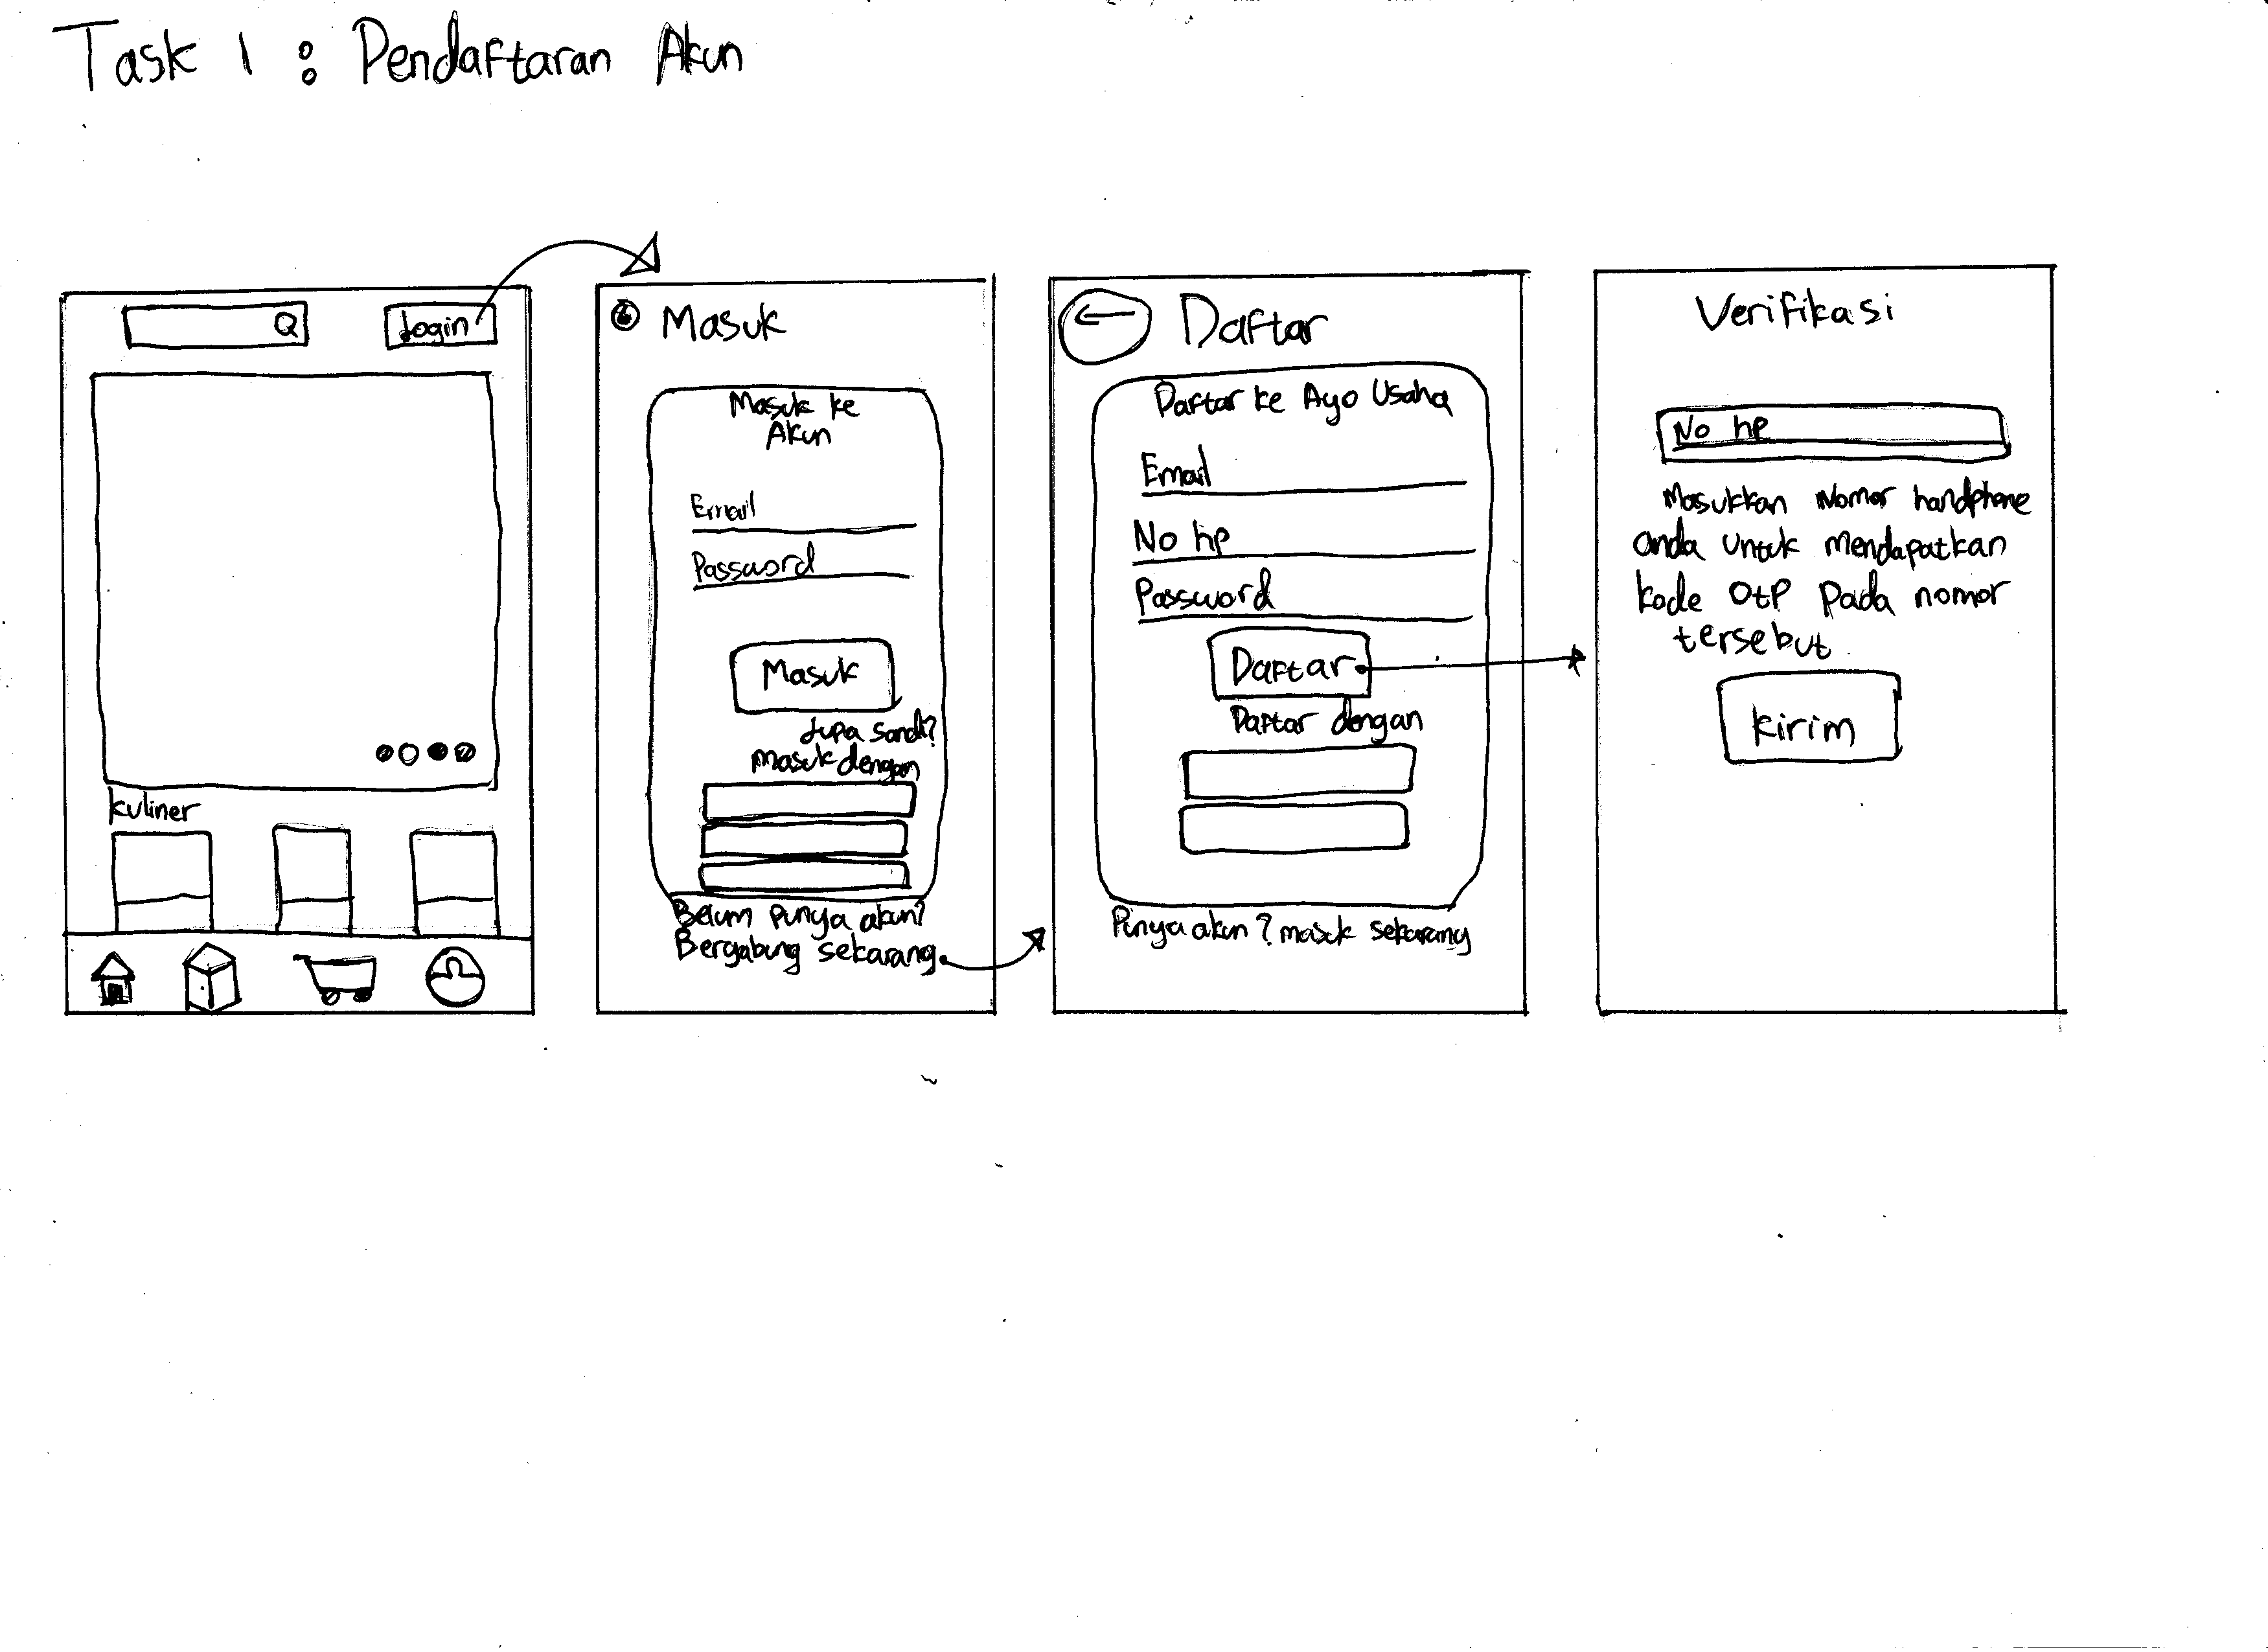 Task 1 : Pendaftaran Akun
Login
Kuliner
Masuk
Masuk ke
Akun
Email
Password
Masuk
Lupa Sandi?
Masuk dengan
Belum punya akun?
Bergabung sekarang
Daftar
Daftar ke Ayo Usaha
Email
No hp
Password
Daftar
Daftar dengan
Punya akun? masuk sekarang
Verifikasi
No hp
Masukkan Nomor handphone
anda untuk mendapatkan
kode OtP pada nomor
tersebut
Kirim